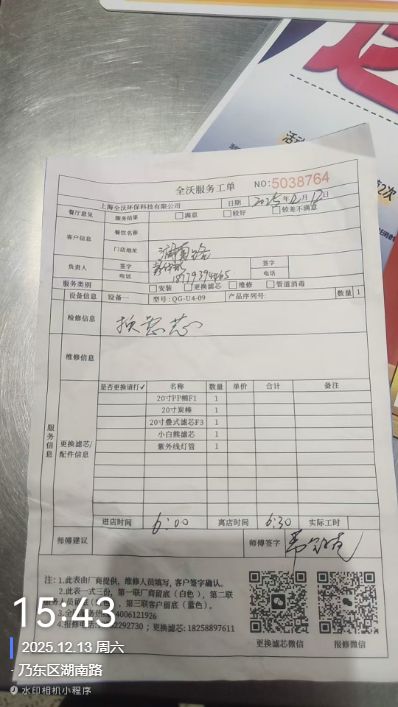 全沃服务工单
NO:5038764
上海全沃环保科技有限公司 日期 2025年12月12日
餐厅意见 服务结果 □满意 □较好 □较差不满意
客户信息 餐饮名称
门店地址 湖南路
负责人 签字 签字
电话 电话
服务类别 □安装 □更换滤芯 □维修 □管道消毒
设备信息 设备一 型号:QG-U4-09 产品序列号: 数量 1
检修信息 换滤芯
维修信息
服务信息 更换滤芯/配件信息
是否更换请打✓ 名称 数量 单价 合计 备注
20寸PP棉F1 1
20寸炭棒 1
20寸叠式滤芯F3 1
小白熊滤芯 1
紫外线灯管 1
进店时间 6:00 离店时间 6:30 实际工时
师傅建议 师傅签字
注:1.此表由厂商提供,维修人员填写,客户签字确认。
2.此表一式三份,第一联厂商留底(白色),第二联
服务人员留底 第三联客户留底(蓝色)。
4006121926
4.报修电 2292730;更换滤芯:18258897611
更换滤芯微信 报修微信
15:43
2025.12.13 周六
乃东区湖南路
水印相机小程序
活
2次